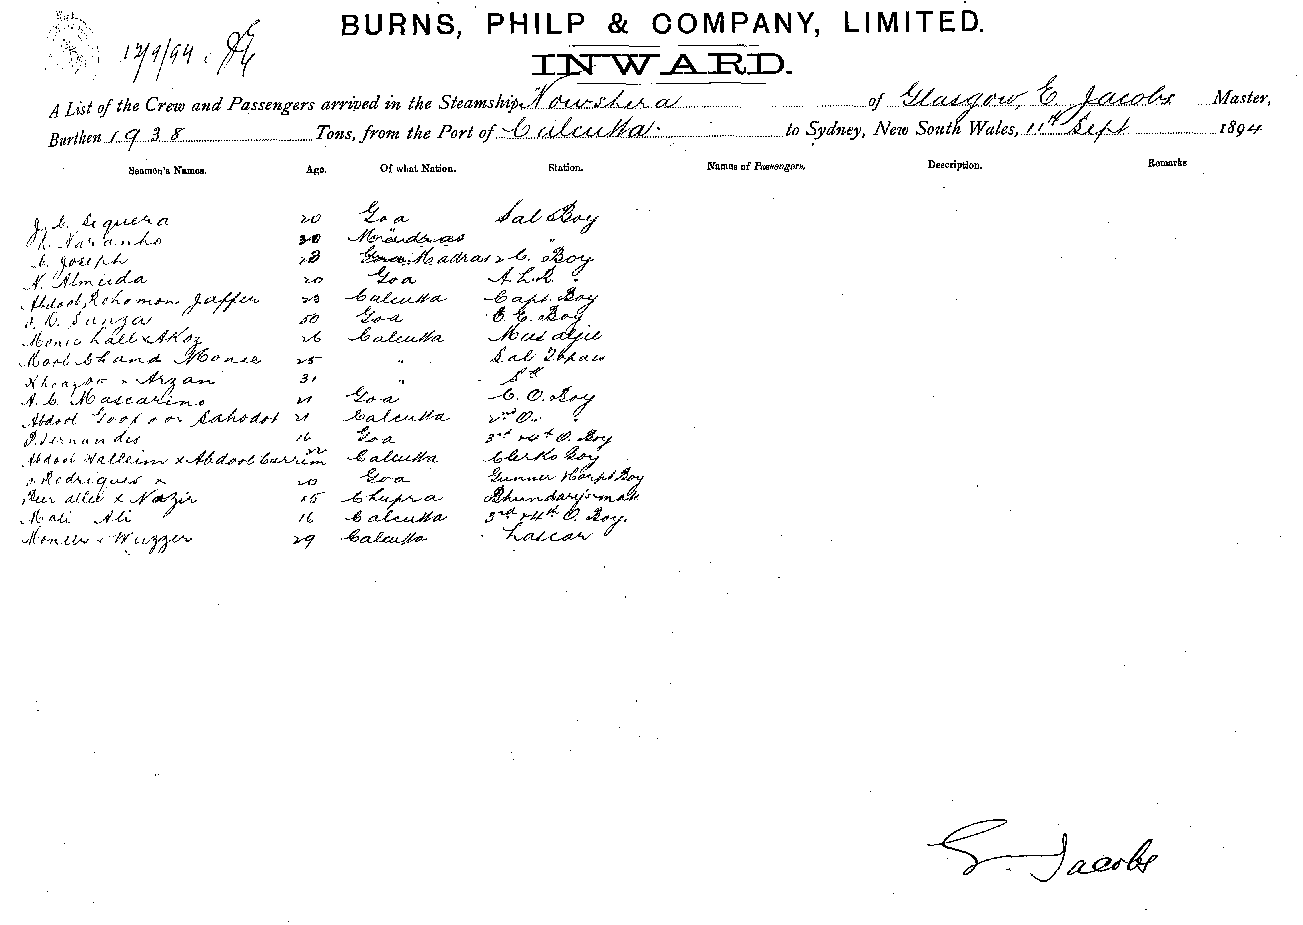 BURNS, PHILP & COMPANY, LIMITED.
12/9/94
INWARD.
A List of the Crew and Passengers arrived in the Steamship, Nowshera of Glasgow, E Jacobs Master,
Burthen 1938 Tons, from the Port of Calcutta. to Sydney, New South Wales, 11th Sept 1894
Seamen's Names. Age. Of what Nation. Station. Names of Passengers. Description. Remarks
J. C. Sequera 20 Goa Sal Boy
Naranho 30 Madras "
C. Joseph 28 Madras 2 C. Boy
N. Almeida 20 Goa "
Abdool Rohomon Jaffer 23 Calcutta Capt. Boy
Sunza 50 Goa C. E. Boy
Monic Lall x Akoz 26 Calcutta Musaljie
Mool Chand Monee 25 " Sal Topass
Arzan 31 "
A. C. Mascarino 21 Goa C. O. Boy
Abdool Goofoor Sahodot 21 Calcutta 2nd O. "
P. Fernandes 16 Goa 3rd x 4th O. Boy
Abdool Halleim x Abdool Currim 22 Calcutta Clerks Boy
Rodrigues x 20 Goa Gunner Boy
Peer allie x Nazir 15 Chupra
Mati Ali 16 Calcutta 3rd x 4th O. Boy.
x Wuzzer 29 Calcutta Lascar
E. Jacobs